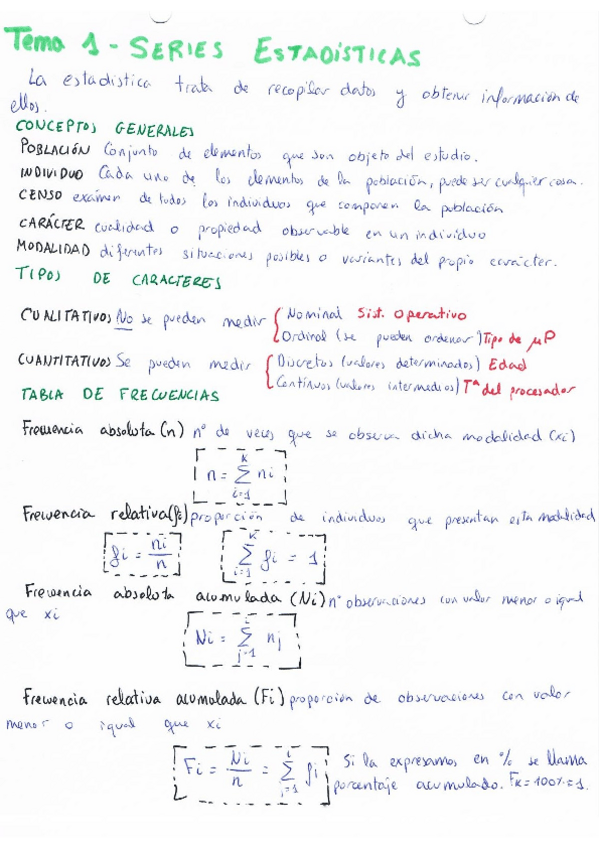 Tema 1 - SERIES ESTADÍSTICAS
La estadística trata de recopilar datos y obtener información de
ellos.
CONCEPTOS GENERALES
POBLACIÓN Conjunto de elementos que son objeto del estudio.
INDIVIDUO Cada uno de los elementos de la población, puede ser cualquier cosa.
CENSO exámen de todos los individuos que componen la población
CARÁCTER cualidad o propiedad observable en un individuo
MODALIDAD diferentes situaciones posibles o variantes del propio carácter.
TIPOS DE CARACTERES
CUALITATIVOS No se pueden medir { Nominal Sist. Operativo
Ordinal (se pueden ordenar) Tipo de μP
CUANTITATIVOS Se pueden medir { Discretos (valores determinados) Edad
Continuos (valores intermedios) Tª del procesador
TABLA DE FRECUENCIAS
Frecuencia absoluta (n) nº de veces que se observa dicha modalidad (xi)
n = Σ_{i=1}^{K} ni
Frecuencia relativa (fi) proporción de individuos que presentan esta modalidad
fi = ni/n Σ_{i=1}^{K} fi = 1
Frecuencia absoluta acumulada (Ni) nº observaciones con valor menor o igual
que xi
Ni = Σ_{j=1}^{i} nj
Frecuencia relativa acumulada (Fi) proporción de observaciones con valor
menor o igual que xi
Fi = Ni/n = Σ_{j=1}^{i} fj Si la expresamos en % se llama
porcentaje acumulado. FK = 100% = 1.